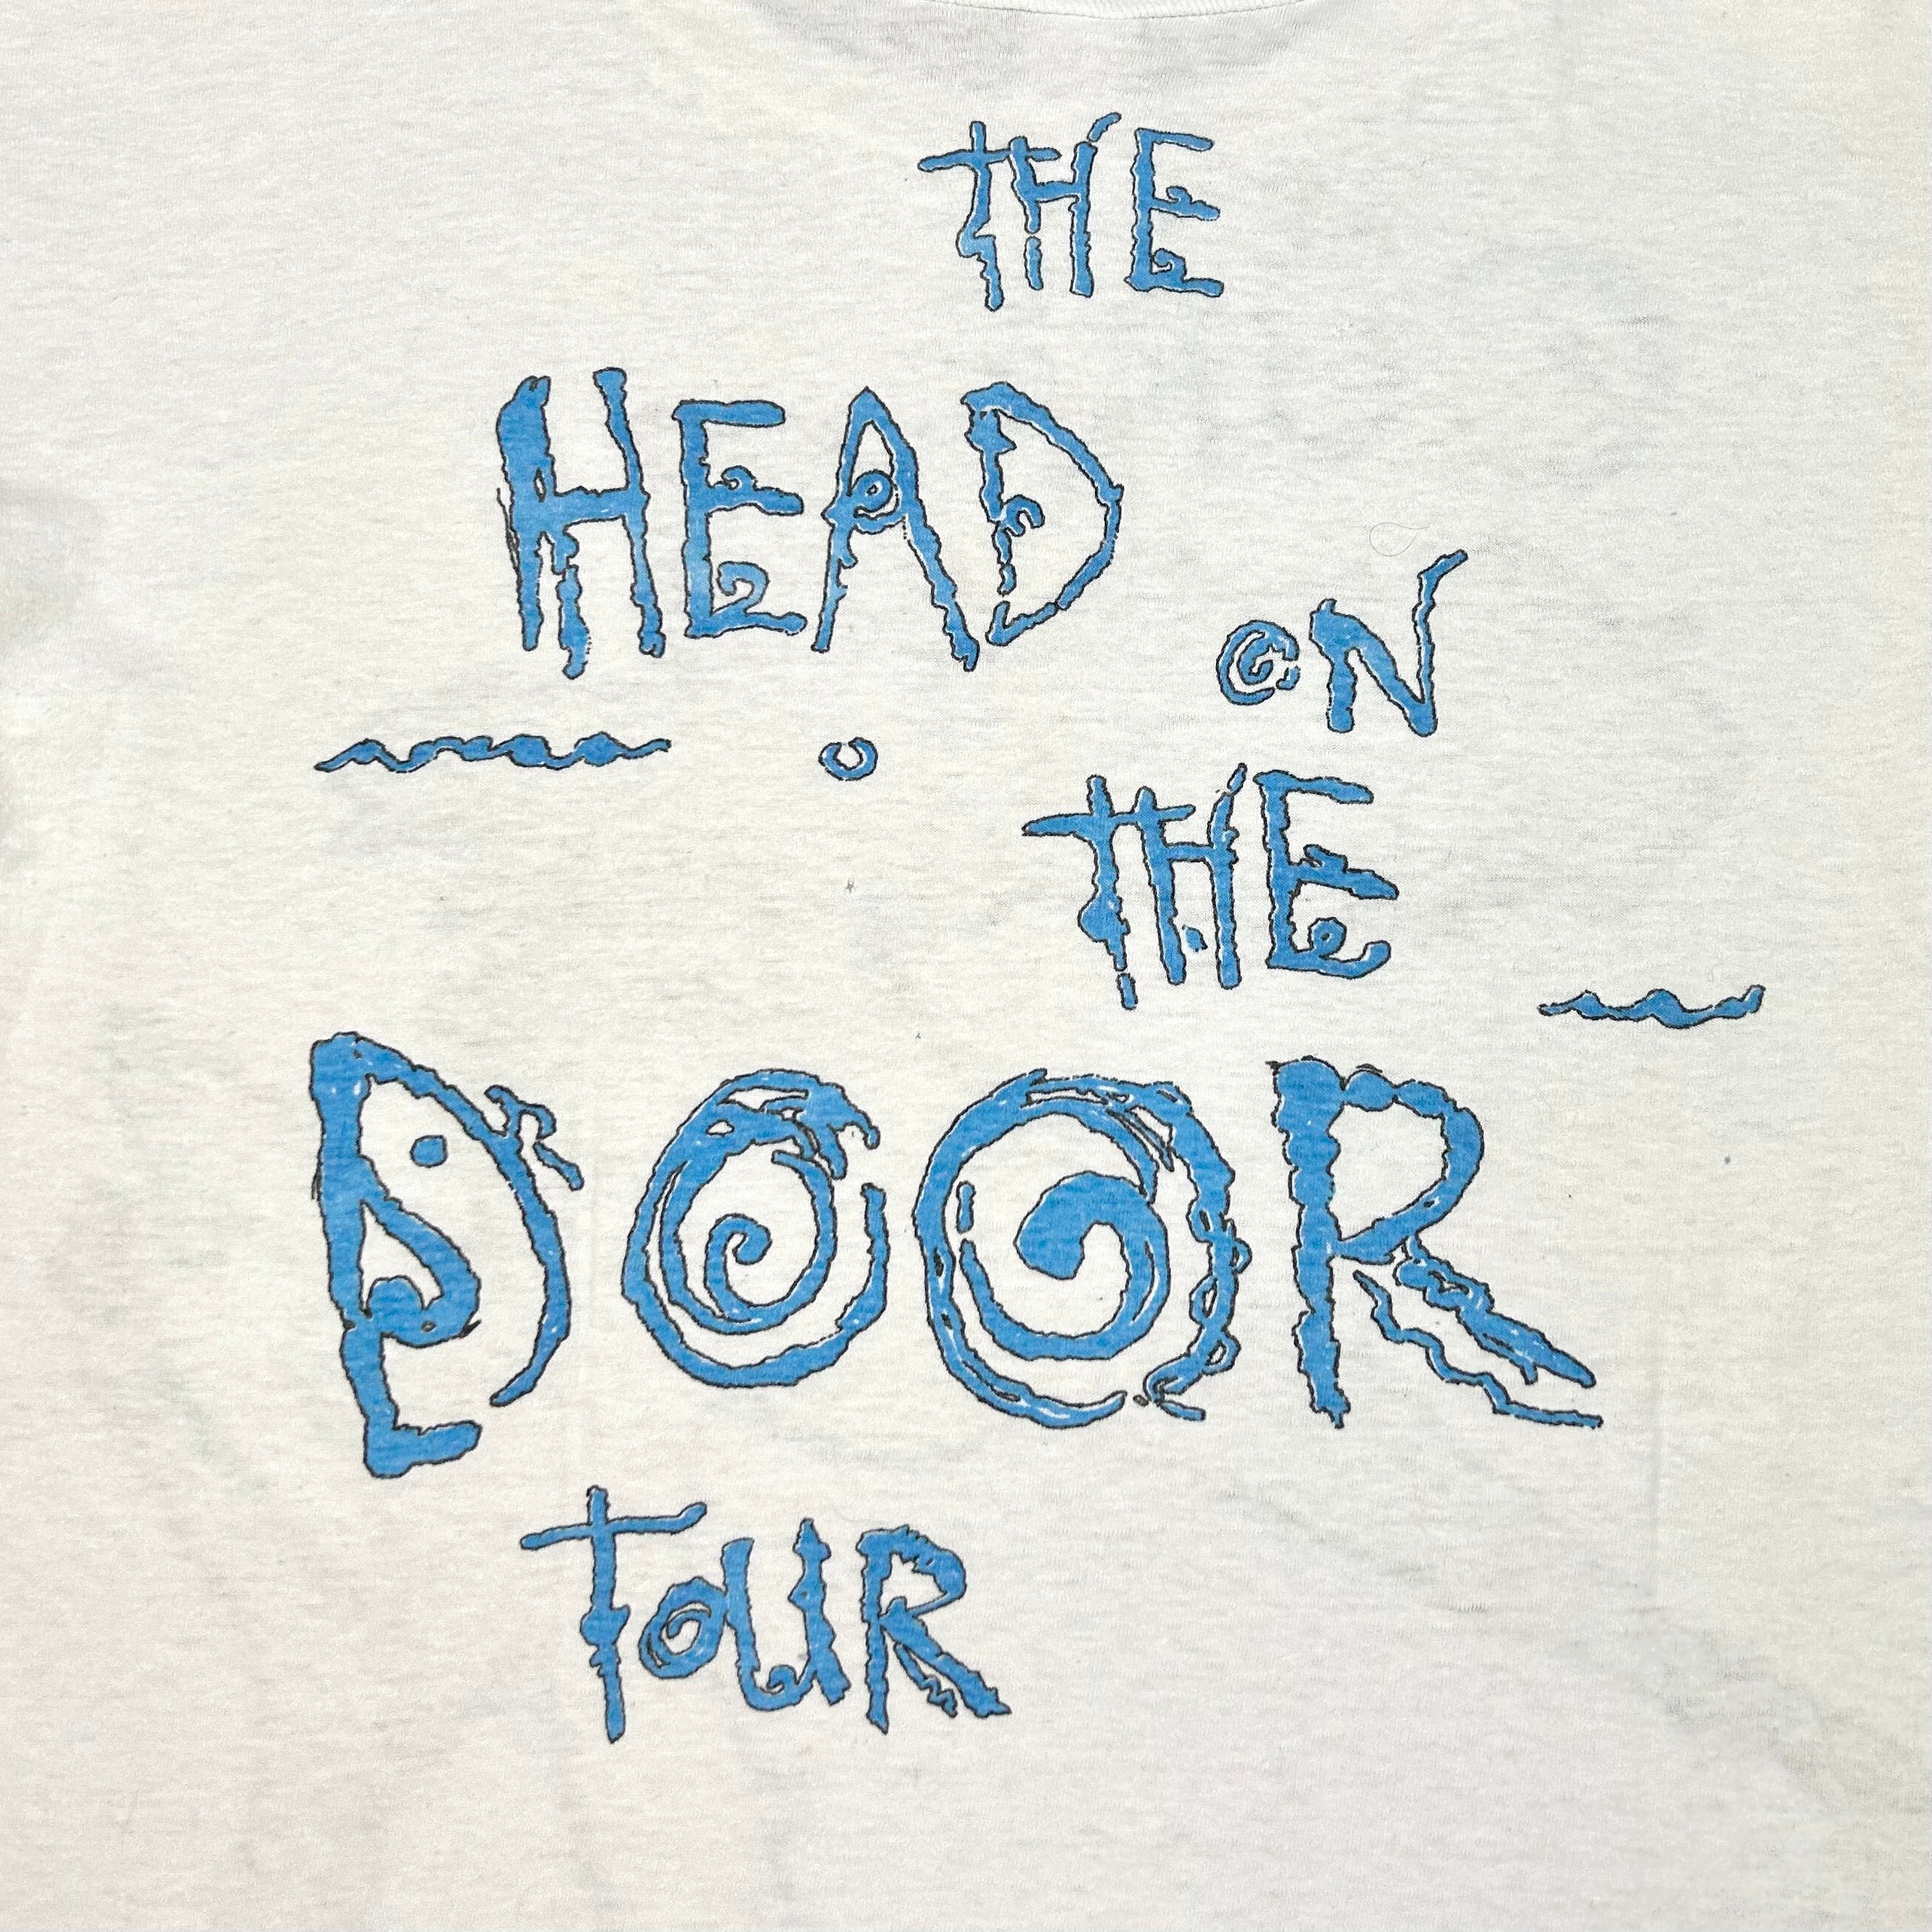 THE
HEAD
ON
THE
DOOR
TOUR